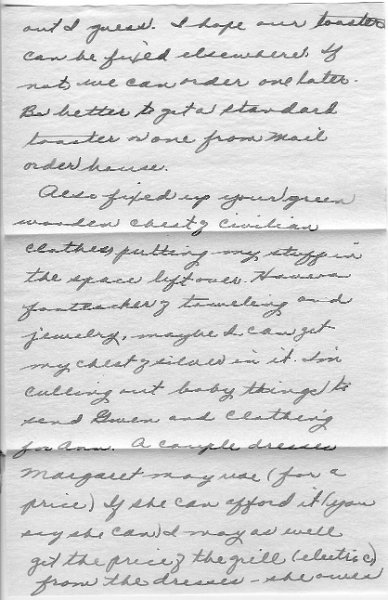 out I guess. I hope our toaster
can be fixed elsewhere. If
not, we can order one later.
Be better to get a standard
toaster or one from mail
order house.
Also fixed up your green
wooden chest of civilian
clothes, putting my stuff in
the space left over. Have a
footlocker of toweling and
jewelry, maybe I can get
my chest of silver in it. I'm
culling out baby things to
send Gwen and clothing
for Ann. A couple dresses
Margaret may use (for a
price) If she can afford it (you
say she can) I may as well
get the price of the grill (electric)
from the dresses - she owes